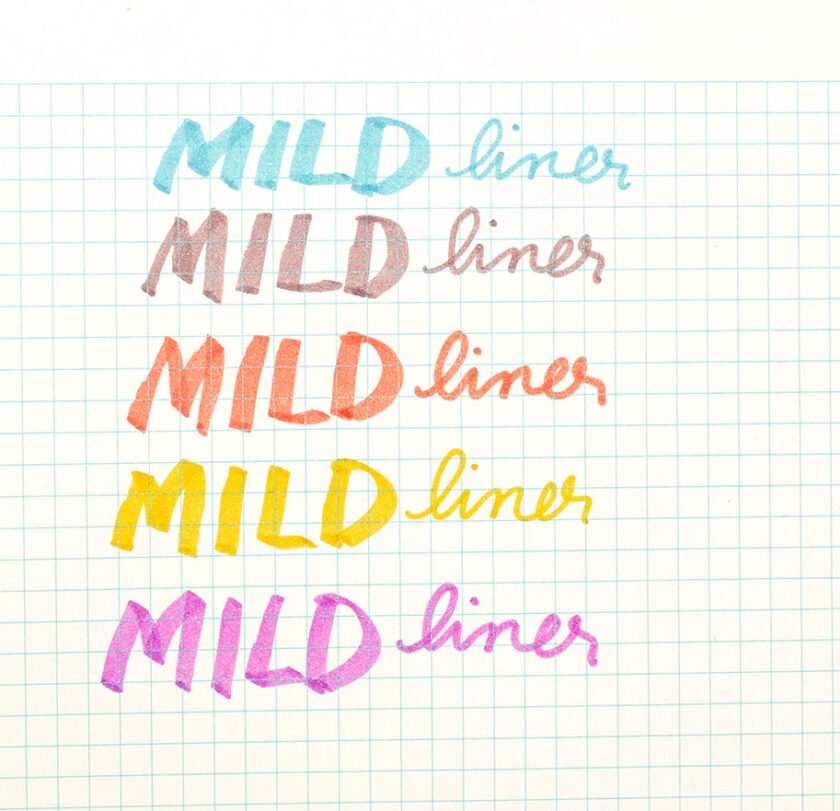 MILD liner
MILD liner
MILD liner
MILD liner
MILD liner